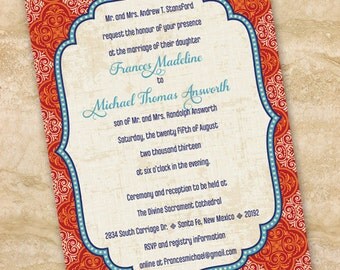 Mr. and Mrs. Andrew T. Stansford
request the honour of your presence
at the marriage of their daughter
Frances Madeline
to
Michael Thomas Answorth
son of Mr. and Mrs. Randolph Answorth
Saturday, the twenty fifth of August
two thousand thirteen
at six o'clock in the evening.
Ceremony and reception to be held at
The Divine Sacrament Cathedral
2834 South Carriage Dr. ◆ Santa Fe, New Mexico ◆ 20192
RSVP and registry information
online at Francesmichael@gmail.com